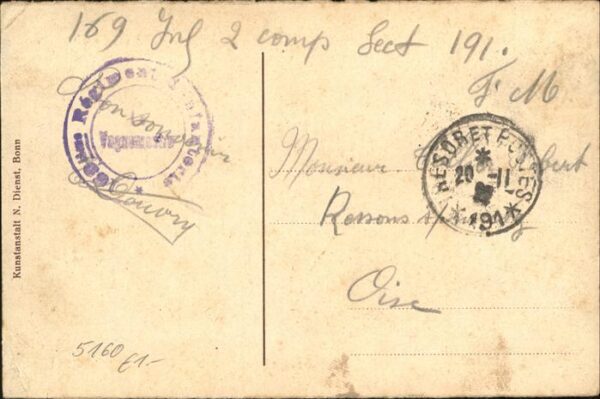 169 Inf 2 comp Sect 191.
F. M
Régiment d'Infanterie
Vaguemestre
Bon souvenir
TRESOR ET POSTES
20 -11
*191*
Monsieur
Ressons s/
Oise
Kunstanstalt N. Dienst, Bonn
5160
£1-